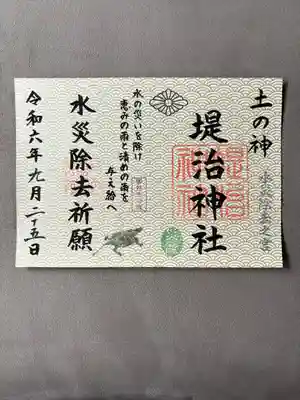 土の神
堤治神社
水の災いを除け
恵みの雨と清めの雨を
与え給へ
水災除去祈願
令和六年九月二十五日